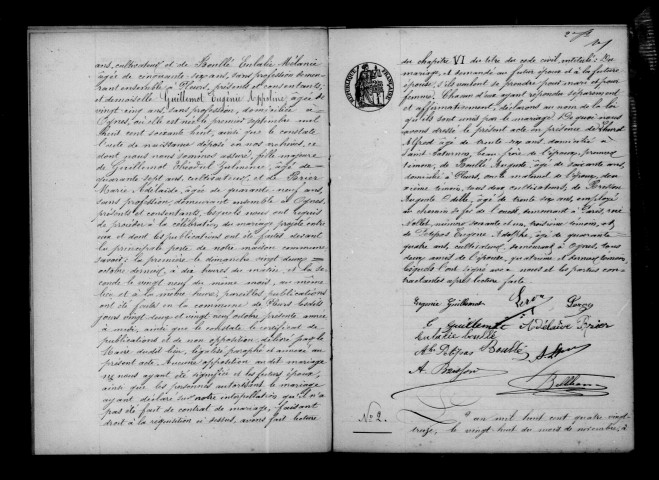 ans, cultivateur, et de Boullé Eulalie Mélanie
âgée de cinquante six ans, sans profession demeu-
rant ensemble à Pleurs, présents et consentants,
et demoiselle Guillemot Eugénie Appoline, âgée de
vingt cinq ans, sans profession, domiciliée à
Ognes, où elle est née le premier septembre mil
huit cent soixante huit, ainsi que le constate
l'acte de naissance déposé en nos archives, et
dont nous nous sommes assuré, fille majeure
de Guillemot Théodule, âgé de
quarante sept ans, cultivateur, et de
Marie Adélaïde, âgée de quarante neuf ans,
sans profession, demeurant ensemble à Ognes,
présents et consentants, lesquels nous ont requis
de procéder à la célébration du mariage projeté entre
eux et dont les publications ont été faites devant
la principale porte de notre maison commune
savoir: la première le dimanche vingt deux
octobre dernier, à dix heures du matin, et la se-
conde le vingt neuf du même mois, au même
lieu et à la même heure; pareilles publications
ont été faites en la commune de Pleurs lesdits
jours vingt deux et vingt neuf octobre présente année
à midi, ainsi que le constate le certificat de
publications et de non opposition délivré par le
Maire dudit lieu, légalisé paraphé et annexé au
présent acte. Aucune opposition au dit mariage
ne nous ayant été signifiée et les futurs époux,
ainsi que les personnes autorisant le mariage
ayant déclaré sur notre interpellation qu'il n'a
pas été fait de contrat de mariage, faisant
droit à la réquisition ci dessus, avons fait lecture
RÉPUBLIQUE FRANÇAISE
du chapitre VI du titre du code civil, intitulé: Du
mariage, et demandé au futur époux et à la future
épouse s'ils veulent se prendre pour mari et pour
femme; Chacun d'eux ayant répondu séparément
et affirmativement, déclarons au nom de la loi
qu'ils sont unis par le mariage. De quoi nous
avons dressé le présent acte en présence de
Alfred âgé de trente six ans, domicilié à
Saint Saturnin, beau frère de l'époux, premier
témoin; de Boullé Auguste, âgé de soixante ans,
domicilié à Pleurs, oncle maternel de l'époux, deu-
xième témoin, tous deux cultivateurs; de
Auguste Odille, âgé de trente six ans, employé
au chemin de fer de l'ouest, demeurant à Paris, rue
Nollet, numéro soixante et un, troisième témoin, et
de Potpas Eugène Adolphe, âgé de quarante
quatre ans, cultivateur, demeurant à Ognes, tous
deux amis de l'épouse, quatrième et dernier témoin,
lesquels l'ont signé avec nous et les parties con-
tractantes après lecture faite.
Eugénie Guillemot
Guillemot Adélaïde
Eulalie Boullé
Boullé
Nº 2.
L'an mil huit cent quatre vingt
treize, le vingt huit du mois de novembre, à